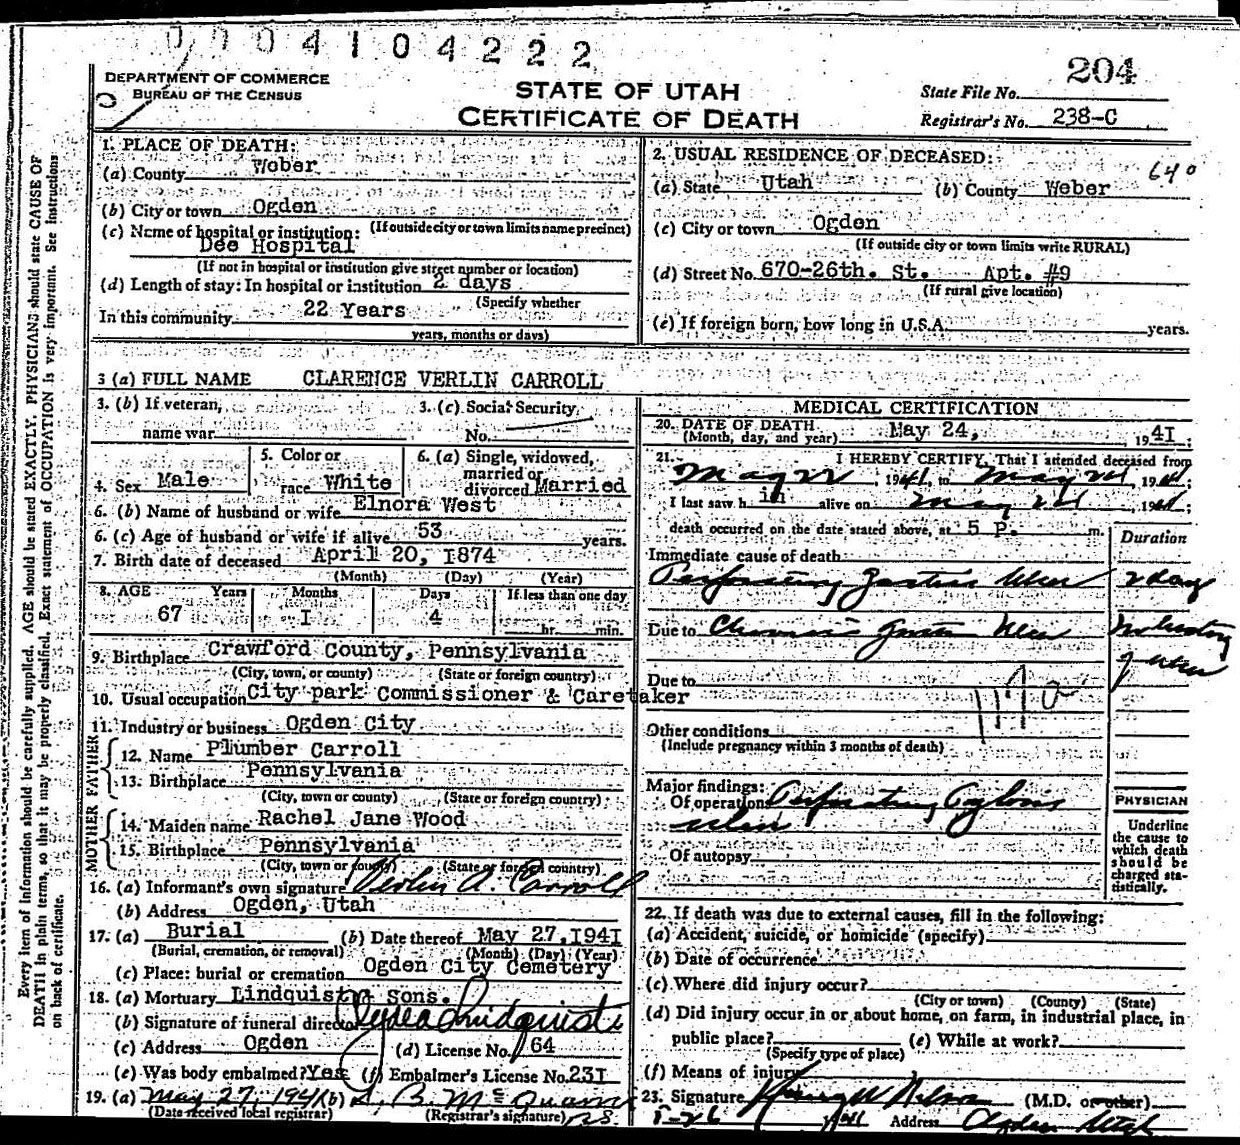 0004104222
DEPARTMENT OF COMMERCE
BUREAU OF THE CENSUS
STATE OF UTAH
CERTIFICATE OF DEATH
204
State File No.
Registrar's No. 238-C
1. PLACE OF DEATH:
(a) County Weber
(b) City or town Ogden
(c) Name of hospital or institution: (If outside city or town limits name precinct)
Dee Hospital
(If not in hospital or institution give street number or location)
(d) Length of stay: In hospital or institution 2 days
(Specify whether
In this community 22 Years
years, months or days)
2. USUAL RESIDENCE OF DECEASED:
640
(a) State Utah (b) County Weber
(c) City or town Ogden
(If outside city or town limits write RURAL)
(d) Street No. 670-26th. St. Apt. #9
(If rural give location)
(e) If foreign born, how long in U.S.A. years.
3 (a) FULL NAME CLARENCE VERLIN CARROLL
3. (b) If veteran, name war
3. (c) Social Security No.
4. Sex Male
5. Color or race White
6. (a) Single, widowed, married or divorced Married
6. (b) Name of husband or wife Elnora West
6. (c) Age of husband or wife if alive 53 years.
7. Birth date of deceased April 20, 1874
(Month) (Day) (Year)
8. AGE Years Months Days If less than one day
67 I 4 hr. min.
9. Birthplace Crawford County, Pennsylvania
(City, town, or county) (State or foreign country)
10. Usual occupation City park Commissioner & Caretaker
11. Industry or business Ogden City
FATHER
12. Name Plumber Carroll
13. Birthplace Pennsylvania
(City, town or county) (State or foreign country)
MOTHER
14. Maiden name Rachel Jane Wood
15. Birthplace Pennsylvania
(City, town or county) (State or foreign country)
16. (a) Informant's own signature Verlin A. Carroll
(b) Address Ogden, Utah
17. (a) Burial (b) Date thereof May 27, 1941
(Burial, cremation, or removal) (Month) (Day) (Year)
(c) Place: burial or cremation Ogden City Cemetery
18. (a) Mortuary Lindquist & Sons.
(b) Signature of funeral director Lindquist
(c) Address Ogden (d) License No. 64
(e) Was body embalmed? Yes (f) Embalmer's License No. 231
19. (a) May 27, 1941 (b)
(Date received local registrar) (Registrar's signature)
MEDICAL CERTIFICATION
20. DATE OF DEATH
(Month, day, and year) May 24, 1941;
21. I HEREBY CERTIFY, That I attended deceased from
May 22, 1941, to May 24, 1941;
I last saw h im alive on May 24, 1941;
death occurred on the date stated above, at 5 P. m.
Duration
Immediate cause of death
Perforating Gastric Ulcer 2 days
Due to Chronic Gastric Ulcer No history of ulcer
Due to
Other conditions
(Include pregnancy within 3 months of death)
Major findings:
Of operations Perforating Pyloric ulcer
Of autopsy
PHYSICIAN
Underline the cause to which death should be charged statistically.
22. If death was due to external causes, fill in the following:
(a) Accident, suicide, or homicide (specify)
(b) Date of occurrence
(c) Where did injury occur?
(City or town) (County) (State)
(d) Did injury occur in or about home, on farm, in industrial place, in
public place? (e) While at work?
(Specify type of place)
(f) Means of injury
23. Signature Nelson (M.D. or other)
5-26 1941 Address Ogden Utah
Every item of information should be carefully supplied. AGE should be stated EXACTLY. PHYSICIANS should state CAUSE OF
DEATH in plain terms, so that it may be properly classified. Exact statement of OCCUPATION is very important. See instructions
on back of certificate.